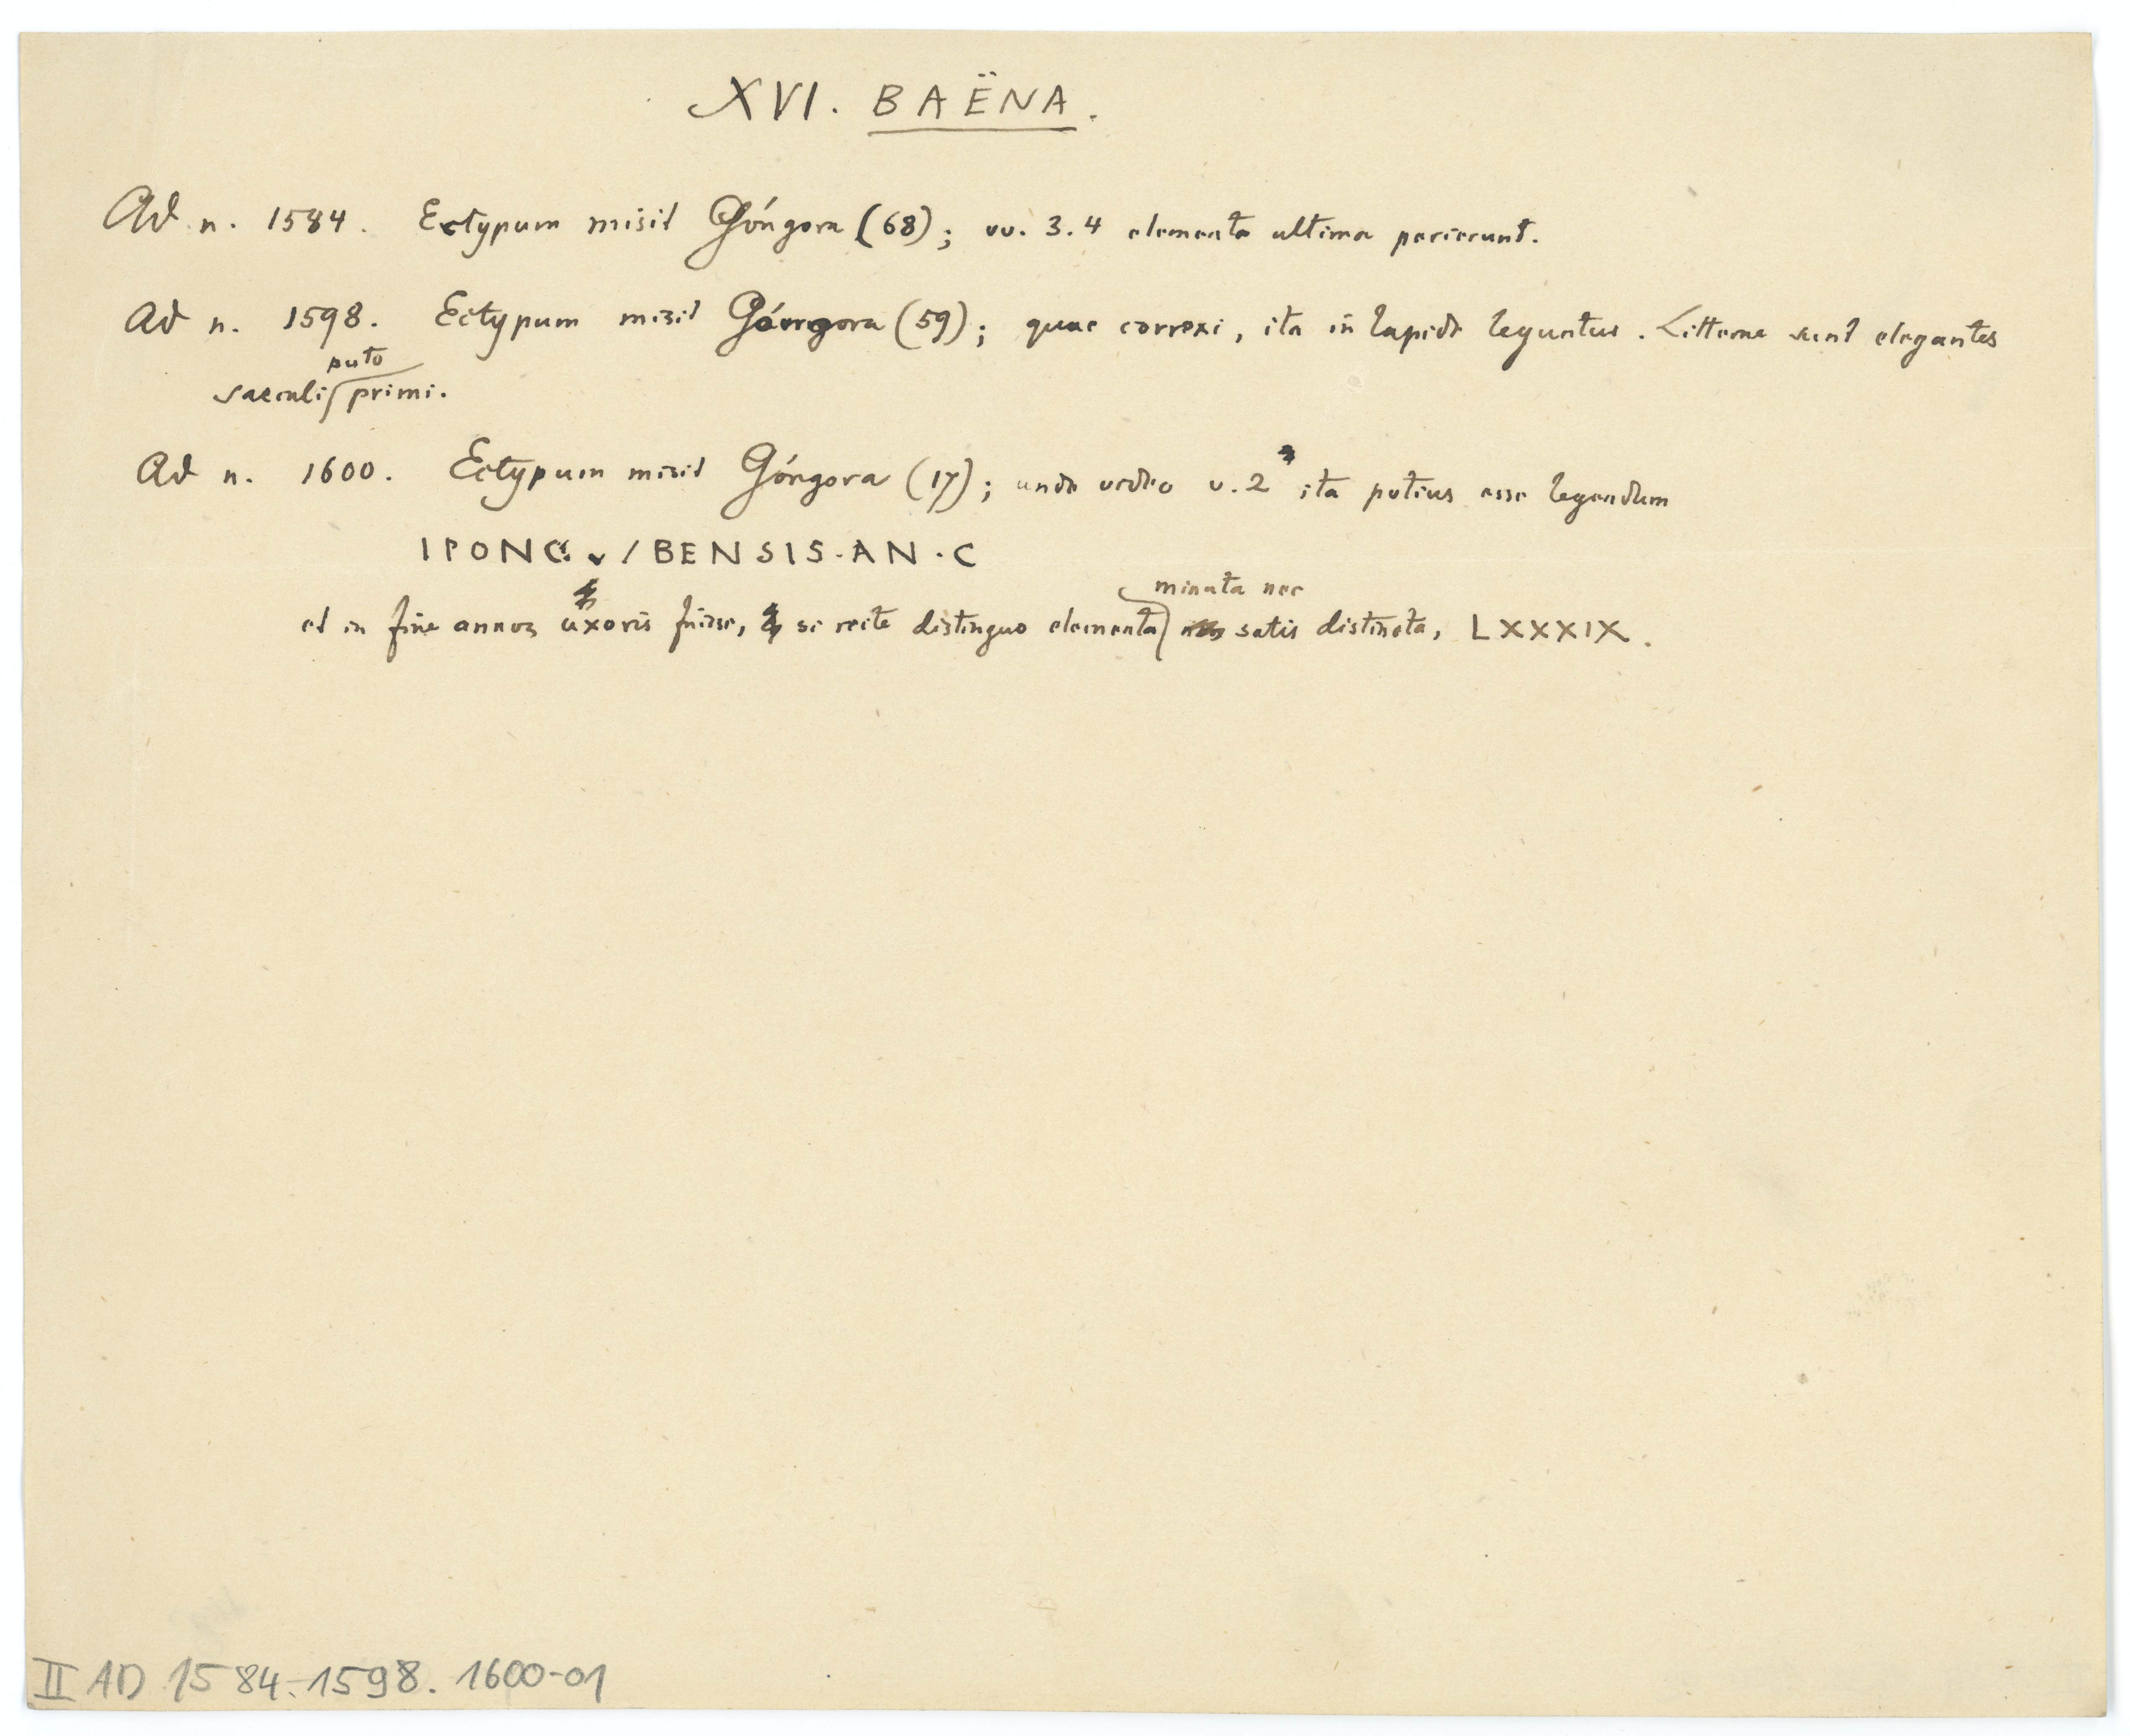 XVI. BAËNA.
Ad n. 1584. Ectypum misit Góngora (68); vv. 3.4 elementa ultima perierunt.
Ad n. 1598. Ectypum misit Góngora (59); quae correxi, ita in lapide leguntur. Litterae sunt elegantes
puto
saeculi primi.
Ad n. 1600. Ectypum misit Góngora (17); unde video v. 2 ita potius esse legendum
IPONO /BENSIS·AN·C
minuta nec
et in fine annos uxoris fuisse, si recte distinguo elementa satis distincta, LXXXIX.
II AD 1584.-1598. 1600-01